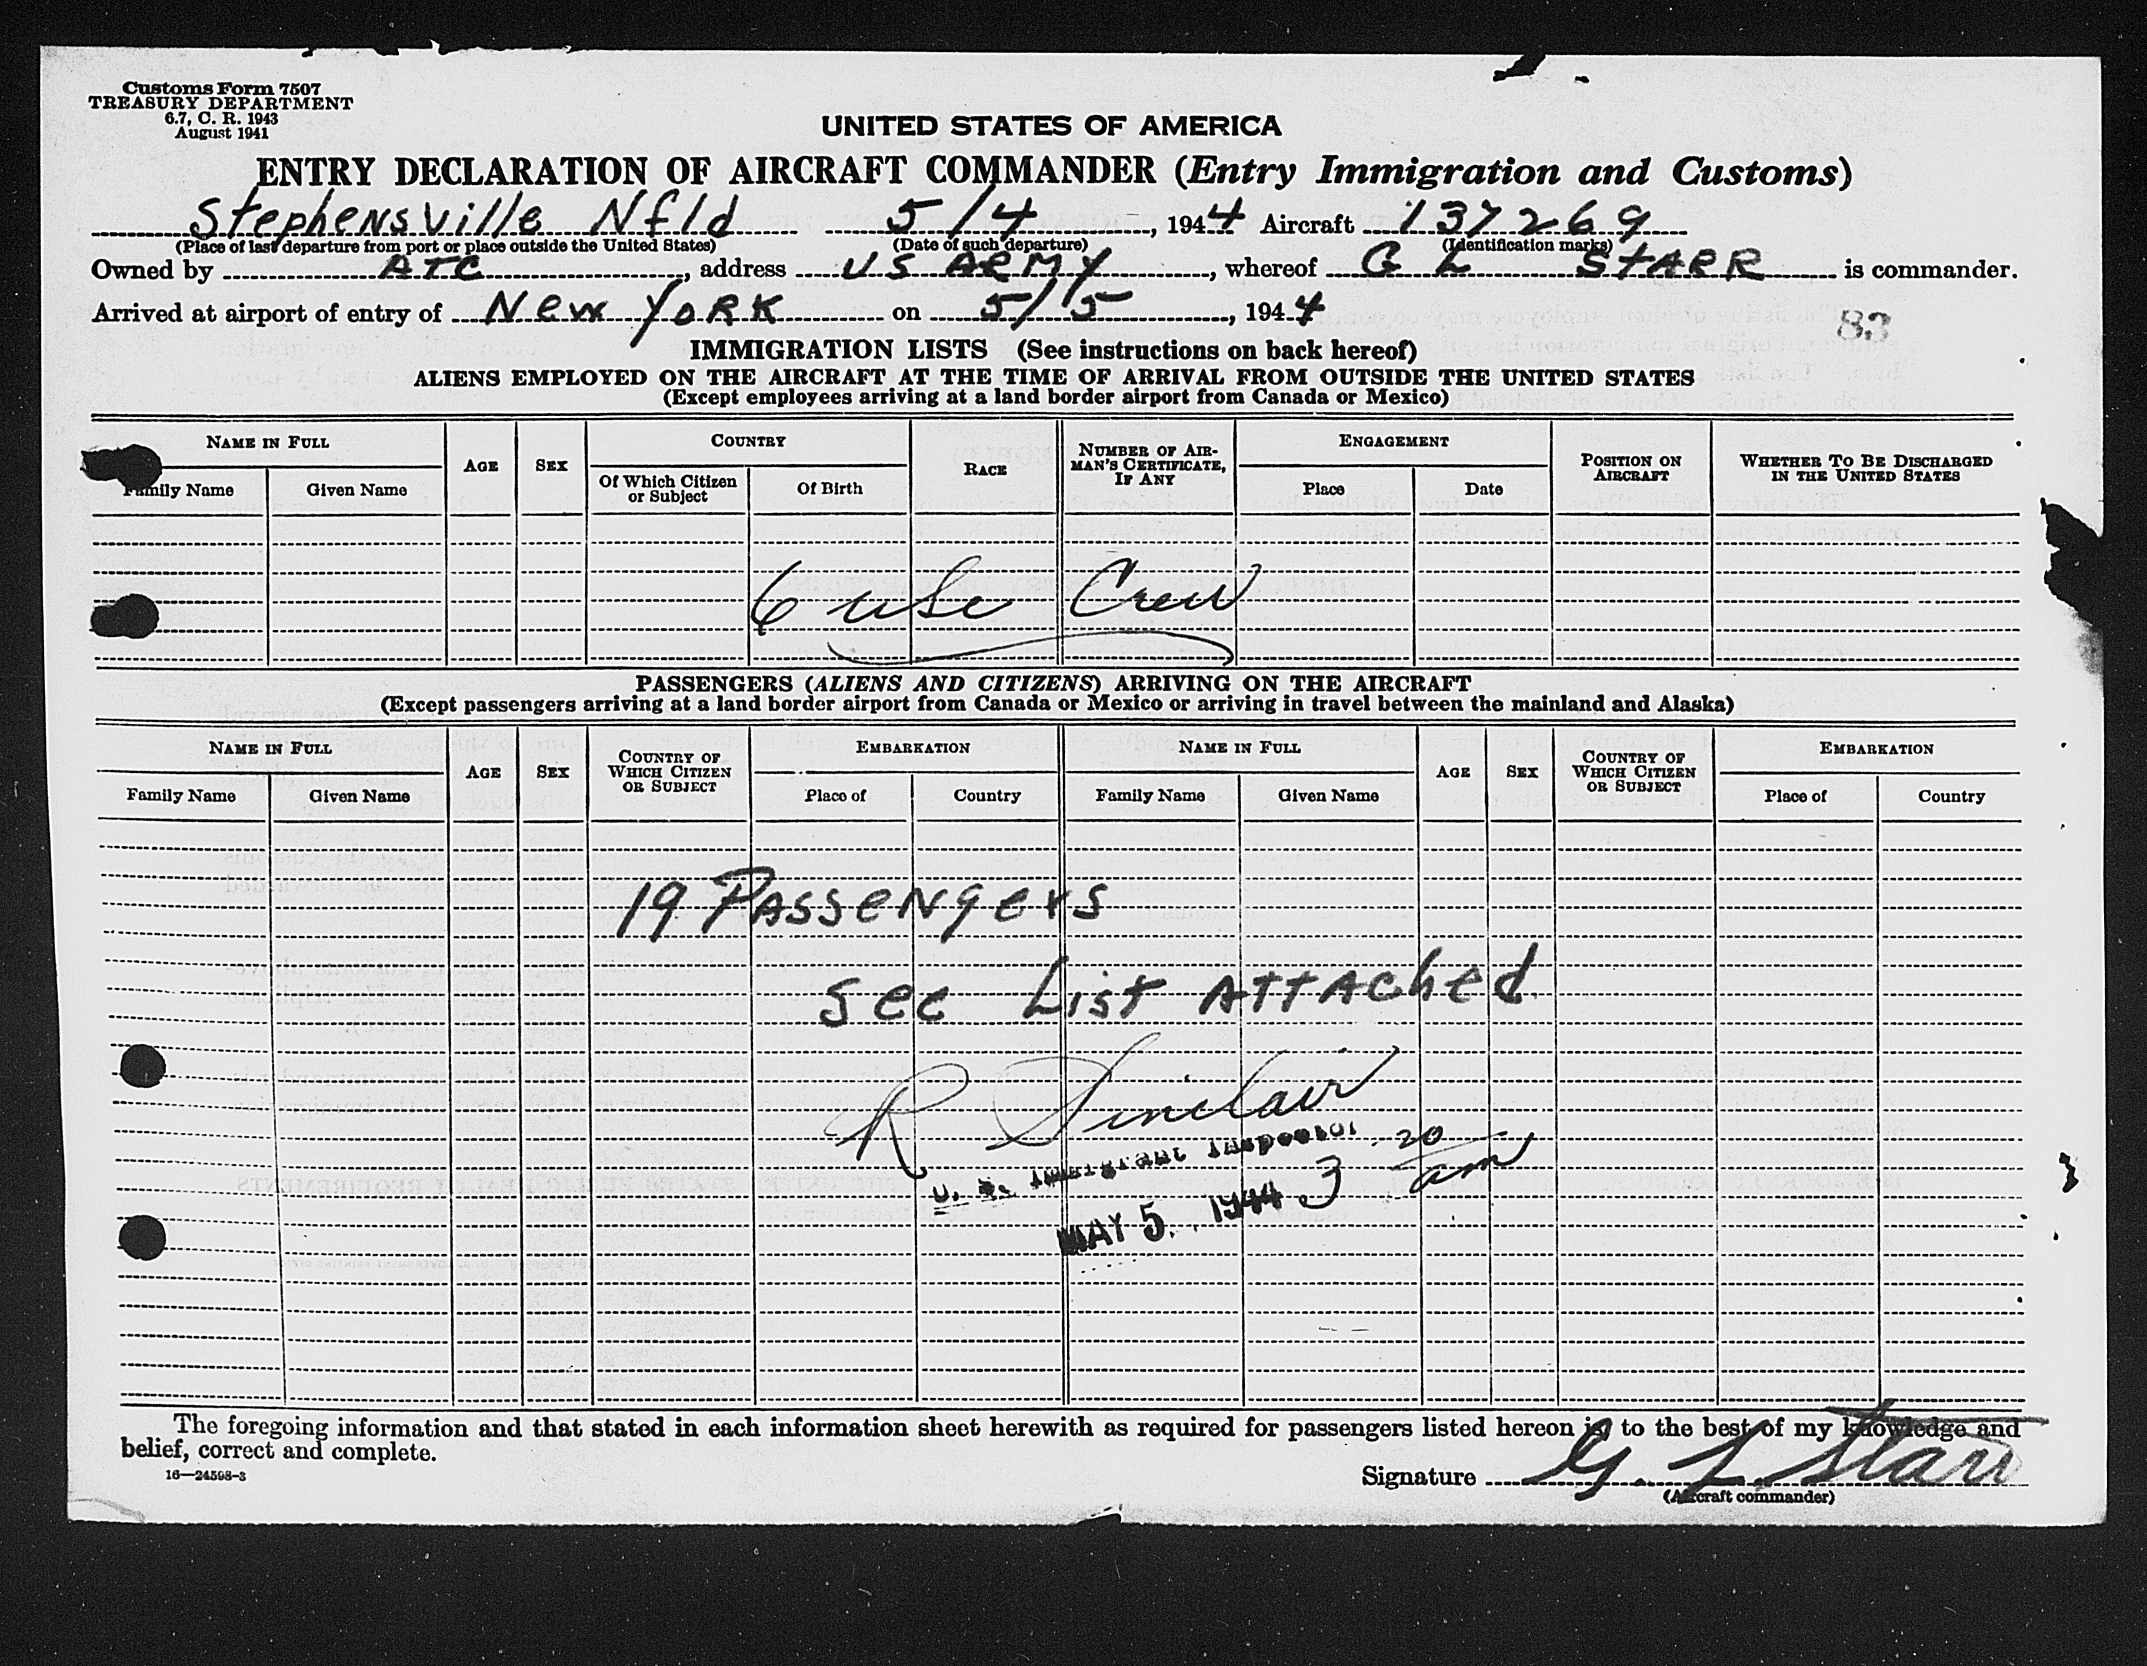 Customs Form 7507
TREASURY DEPARTMENT
6.7, C. R. 1943
August 1941
UNITED STATES OF AMERICA
ENTRY DECLARATION OF AIRCRAFT COMMANDER (Entry Immigration and Customs)
Stephensville Nfld 5/4, 1944 Aircraft 137269
(Place of last departure from port or place outside the United States) (Date of such departure) (Identification marks)
Owned by ATC, address US ARMY, whereof G L STARR is commander.
Arrived at airport of entry of New York on 5/5, 1944
83
IMMIGRATION LISTS (See instructions on back hereof)
ALIENS EMPLOYED ON THE AIRCRAFT AT THE TIME OF ARRIVAL FROM OUTSIDE THE UNITED STATES
(Except employees arriving at a land border airport from Canada or Mexico)
NAME IN FULL AGE SEX COUNTRY RACE NUMBER OF AIRMAN'S CERTIFICATE, IF ANY ENGAGEMENT POSITION ON AIRCRAFT WHETHER TO BE DISCHARGED IN THE UNITED STATES
Family Name Given Name Of Which Citizen or Subject Of Birth Place Date
6 usc Crew
PASSENGERS (ALIENS AND CITIZENS) ARRIVING ON THE AIRCRAFT
(Except passengers arriving at a land border airport from Canada or Mexico or arriving in travel between the mainland and Alaska)
NAME IN FULL AGE SEX COUNTRY OF WHICH CITIZEN OR SUBJECT EMBARKATION NAME IN FULL AGE SEX COUNTRY OF WHICH CITIZEN OR SUBJECT EMBARKATION
Family Name Given Name Place of Country Family Name Given Name Place of Country
19 Passengers
See List Attached
R Sinclair
U. S. Immigrant Inspector
MAY 5, 1944 3 20 am
The foregoing information and that stated in each information sheet herewith as required for passengers listed hereon is, to the best of my knowledge and
belief, correct and complete.
16—24598-3
Signature G. L. Starr
(Aircraft commander)